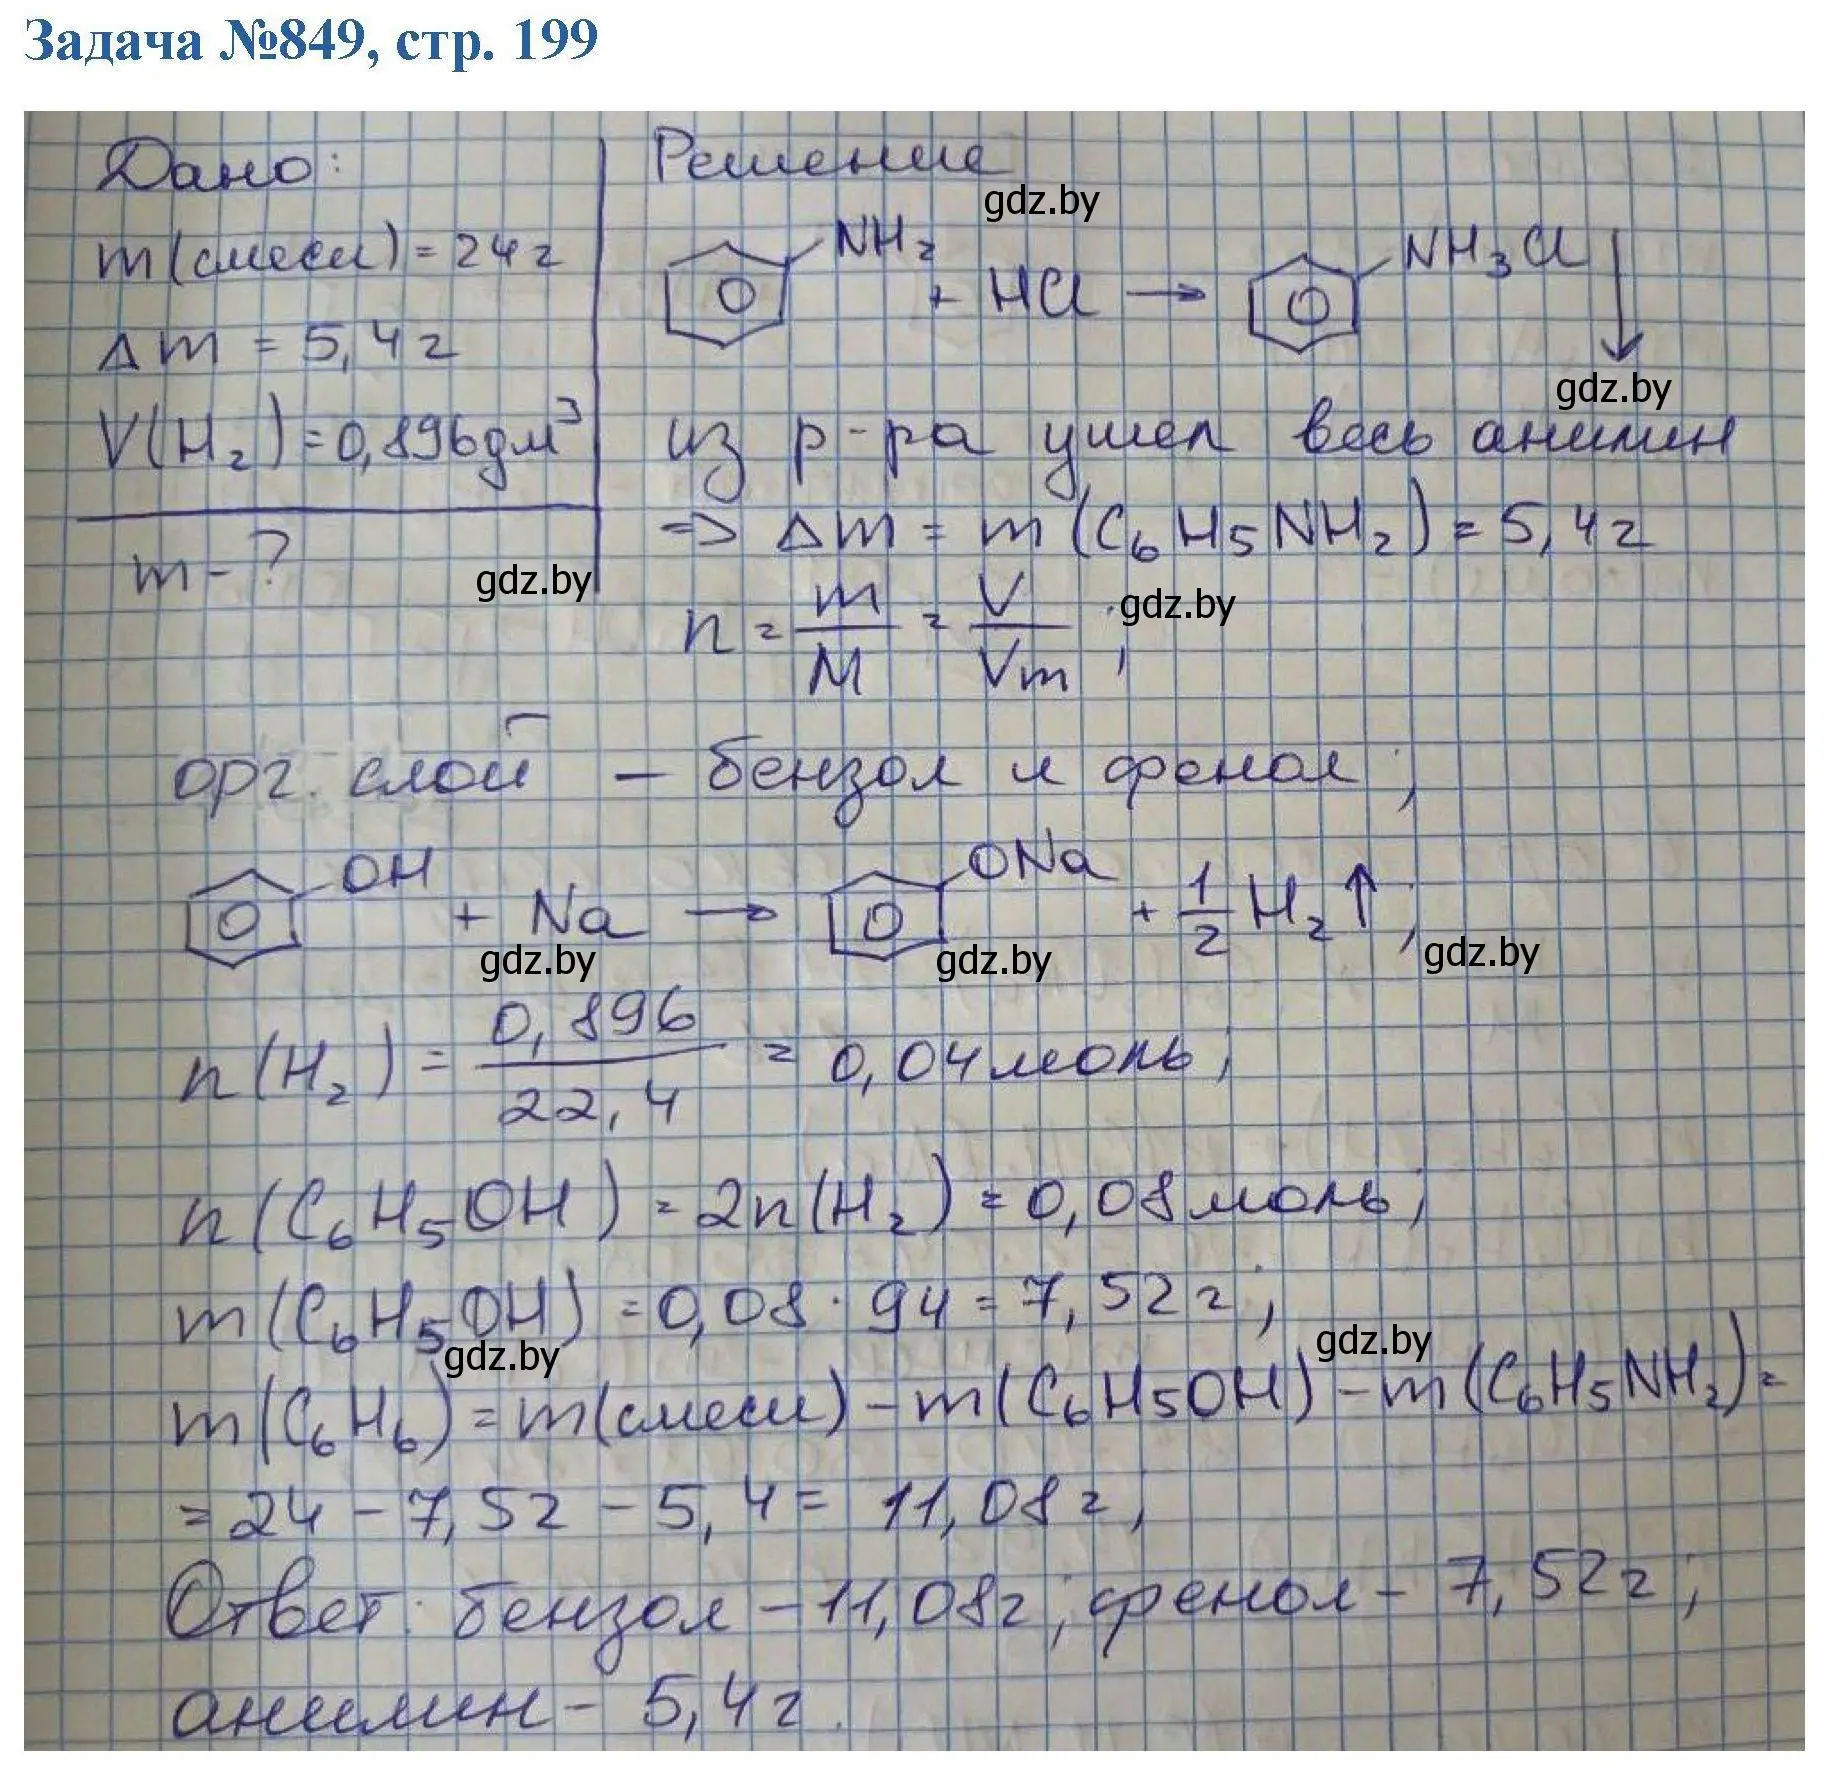 Задача №849, стр. 199
Дано:
m(смеси) = 24 г
Δm = 5,4 г
V(H₂) = 0,896 дм³
m - ?
Решение
gdz.by
NH₂ + HCl → NH₃Cl ↓
gdz.by
из р-ра ушел весь анилин
=> Δm = m(C₆H₅NH₂) = 5,4 г
gdz.by
n = m/M = V/Vm ;
gdz.by
орг. слой – бензол и фенол ;
OH + Na → ONa + 1/2 H₂↑ ;
gdz.by
gdz.by
gdz.by
n(H₂) = 0,896/22,4 = 0,04 моль ;
n(C₆H₅OH) = 2n(H₂) = 0,08 моль ;
m(C₆H₅OH) = 0,08 · 94 = 7,52 г ;
gdz.by
gdz.by
m(C₆H₆) = m(смеси) – m(C₆H₅OH) – m(C₆H₅NH₂) =
= 24 – 7,52 – 5,4 = 11,08 г ;
Ответ: бензол – 11,08 г ; фенол – 7,52 г ;
анилин – 5,4 г.